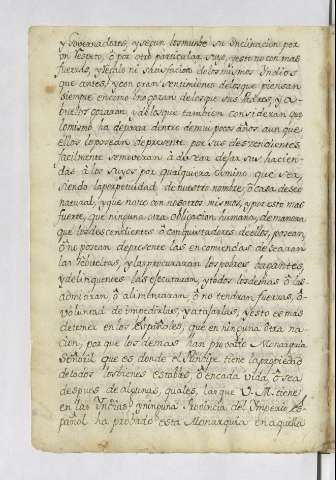 y Governadores, y segun los mueve su Inclinacion por
on respeto, ò por otro particular suyo, y esto no con mas
fuerza, y titulo ni satisfacion de los mismos Indios
que antes, y con gran sentimiento de los que piensan
siempre en como no gozan de lo que sus Padres, y A-
buelos gozaron, y de los que tambien consideran que
lo mismo ha de pasar dentro de mui pocos años, aunque
ellos lo posean de presente por sus descendientes,
facilmente se moveran à desear dejar sus hacien-
das à los suyos por qualquiera camino que sea,
siendo la perpetuidad de nuestro nombre, ò casa deseo
natural, y que nace con nosotros mismos, y por esto mas
fuerte, que ninguna otra obligacion humana, de manera
que los descendientes ò conquistadores de ellos, posean,
ò no posean de presente las encomiendas desearan
las rebueltas, y las procuraran los pobres bagantes,
y delinquentes las executaran, y todos los demas ò las
admitiran, ò alimentaran, ò no tendran fuerzas, ò
voluntad de impedirlas, y atajarlas, y esto es mas
de temer en los Españoles, que en ninguna otra na-
cion, por que los demas han provado Monarquia
Señoril que es donde el Principe tiene la propiedad
de todos los bienes estables, ò en cada vida, ò sea
despues de algunas, quales, las que V. M. tiene
en las Indias, y ninguna Provincia del Imperio Es-
pañol ha provado esta Monarquia en aquella